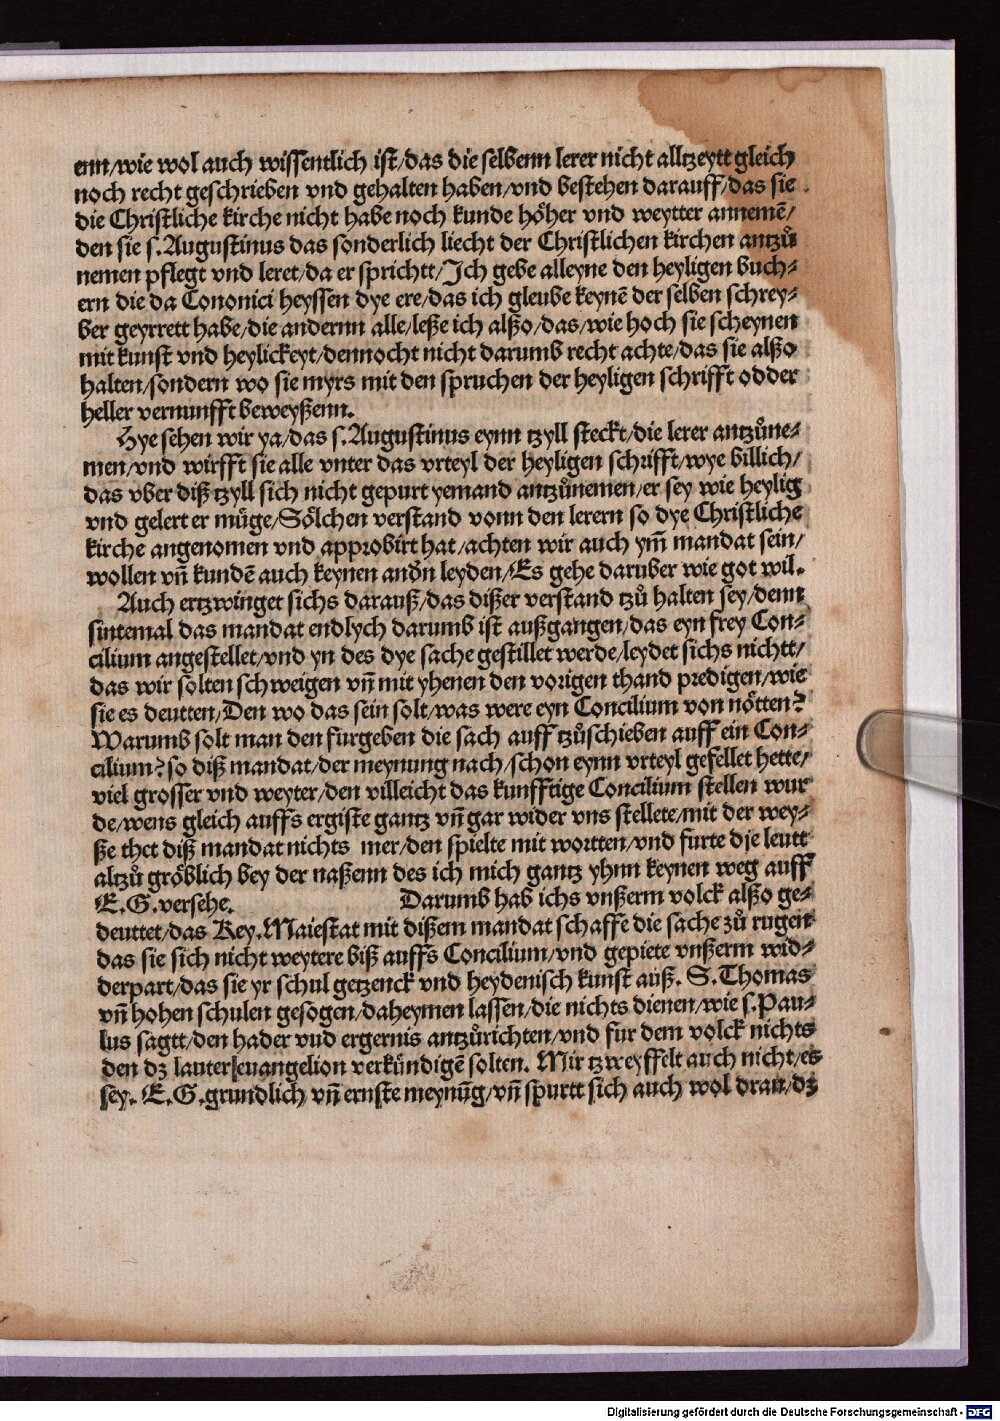 enn/wie wol auch wissentlich ist/das die selbenn lerer nicht alltzeytt gleich
noch recht geschrieben vnd gehalten haben/vnd bestehen darauff/das sie
die Christliche kirche nicht habe noch kunde hoͤher vnd weytter annemē/
den sie s. Augustinus das sonderlich liecht der Christlichen kirchen antzuͦ
nemen pflegt vnd leret/da er sprichtt/Ich gebe alleyne den heyligen buch⸗
ern die da Cononici heyssen dye ere/das ich gleube keynē der selben schrey⸗
ber geyrrett habe/die andernn alle/leße ich alßo/das/wie hoch sie scheynen
mit kunst vnd heylickeyt/dennocht nicht darumb recht achte/das sie alßo
halten/sondern wo sie myrs mit den spruchen der heyligen schrifft odder
heller vernunfft beweyßenn.
Hye sehen wir ya/das s. Augustinus eynn tzyll steckt/die lerer antzuͦne⸗
men/vnd wirfft sie alle vnter das vrteyl der heyligen schrifft/wye billich/
das vber diß tzyll sich nicht gepurt yemand antzuͦnemen/er sey wie heylig
vnd gelert er muͤge/Soͤlchen verstand vonn den lerern so dye Christliche
kirche angenomen vnd approbirt hat/achten wir auch ym̄ mandat sein/
wollen vn̄ kundē auch keynen andn leyden/Es gehe daruber wie got wil.
Auch ertzwinget sichs darauß/das dißer verstand tzuͦ halten sey/denn
sintemal das mandat endlych darumb ist außgangen/das eyn frey Con⸗
cilium angestellet/vnd yn des dye sache gestillet werde/leydet sichs nichtt/
das wir solten schweigen vn̄ mit yhenen den vorigen thand predigen/wie
sie es deutten/Den wo das sein solt/was were eyn Concilium von noͤtten?
Warumb solt man den furgeben die sach auff tzuͦschieben auff ein Con⸗
cilium? so diß mandat/der meynung nach/schon eynn vrteyl gefellet hette/
viel grosser vnd weyter/den villeicht das kunfftige Concilium stellen wur
de/wens gleich auffs ergiste gantz vn̄ gar wider vns stellete/mit der wey⸗
ße thet diß mandat nichts mer/den spielte mit wortten/vnd furte dje leutt
altzuͦ groͤblich bey der naßenn des ich mich gantz yhnn keynen weg auff
E. G. versehe. Darumb hab ichs vnßerm volck alßo ge⸗
deuttet/das Key. Maiestat mit dißem mandat schaffe die sache zuͦ rugen
das sie sich nicht weytere biß auffs Concilium/vnd gepiete vnßerm wid⸗
derpart/das sie yr schul getzenck vnd heydenisch kunst auß. S. Thomas
vn̄ hohen schulen gesogen/daheymen lassen/die nichts dienen/wie s. Pau⸗
lus sagtt/den hader vnd ergernis antzuͦrichten/vnd fur dem volck nichts
den dz lauter euangelion verkuͤndigē solten. Mir tzweyffelt auch nicht/es
sey. E. G. grundlich vn̄ ernste meynūg/vn̄ spurtt sich auch wol dran/dz
Digitalisierung gefördert durch die Deutsche Forschungsgemeinschaft - DFG